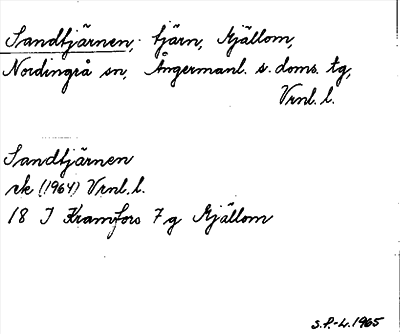 Sandtjärnen; tjärn, Mjällom,
Nordingrå sn, Ångermanl. s. doms. tg,
Vrnl. l.
Sandtjärnen
ek (1964) Vrnl. l.
18 I Kramfors 7 g Mjällom
S.P.-L. 1965